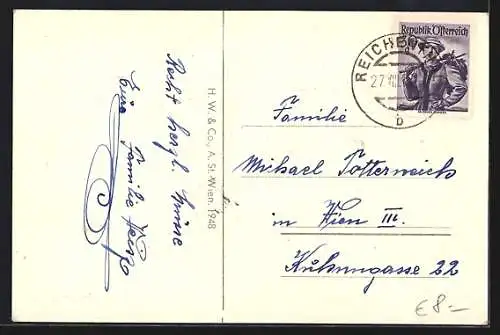 Recht herzl. Grüsse
Eure Familie
H. W. & Co., A. St.-Wien. 1948
Republik Österreich
27. VII.
b
Familie
Michael Totterweich
in Wien III.
Kübungasse 22
€ 8.-